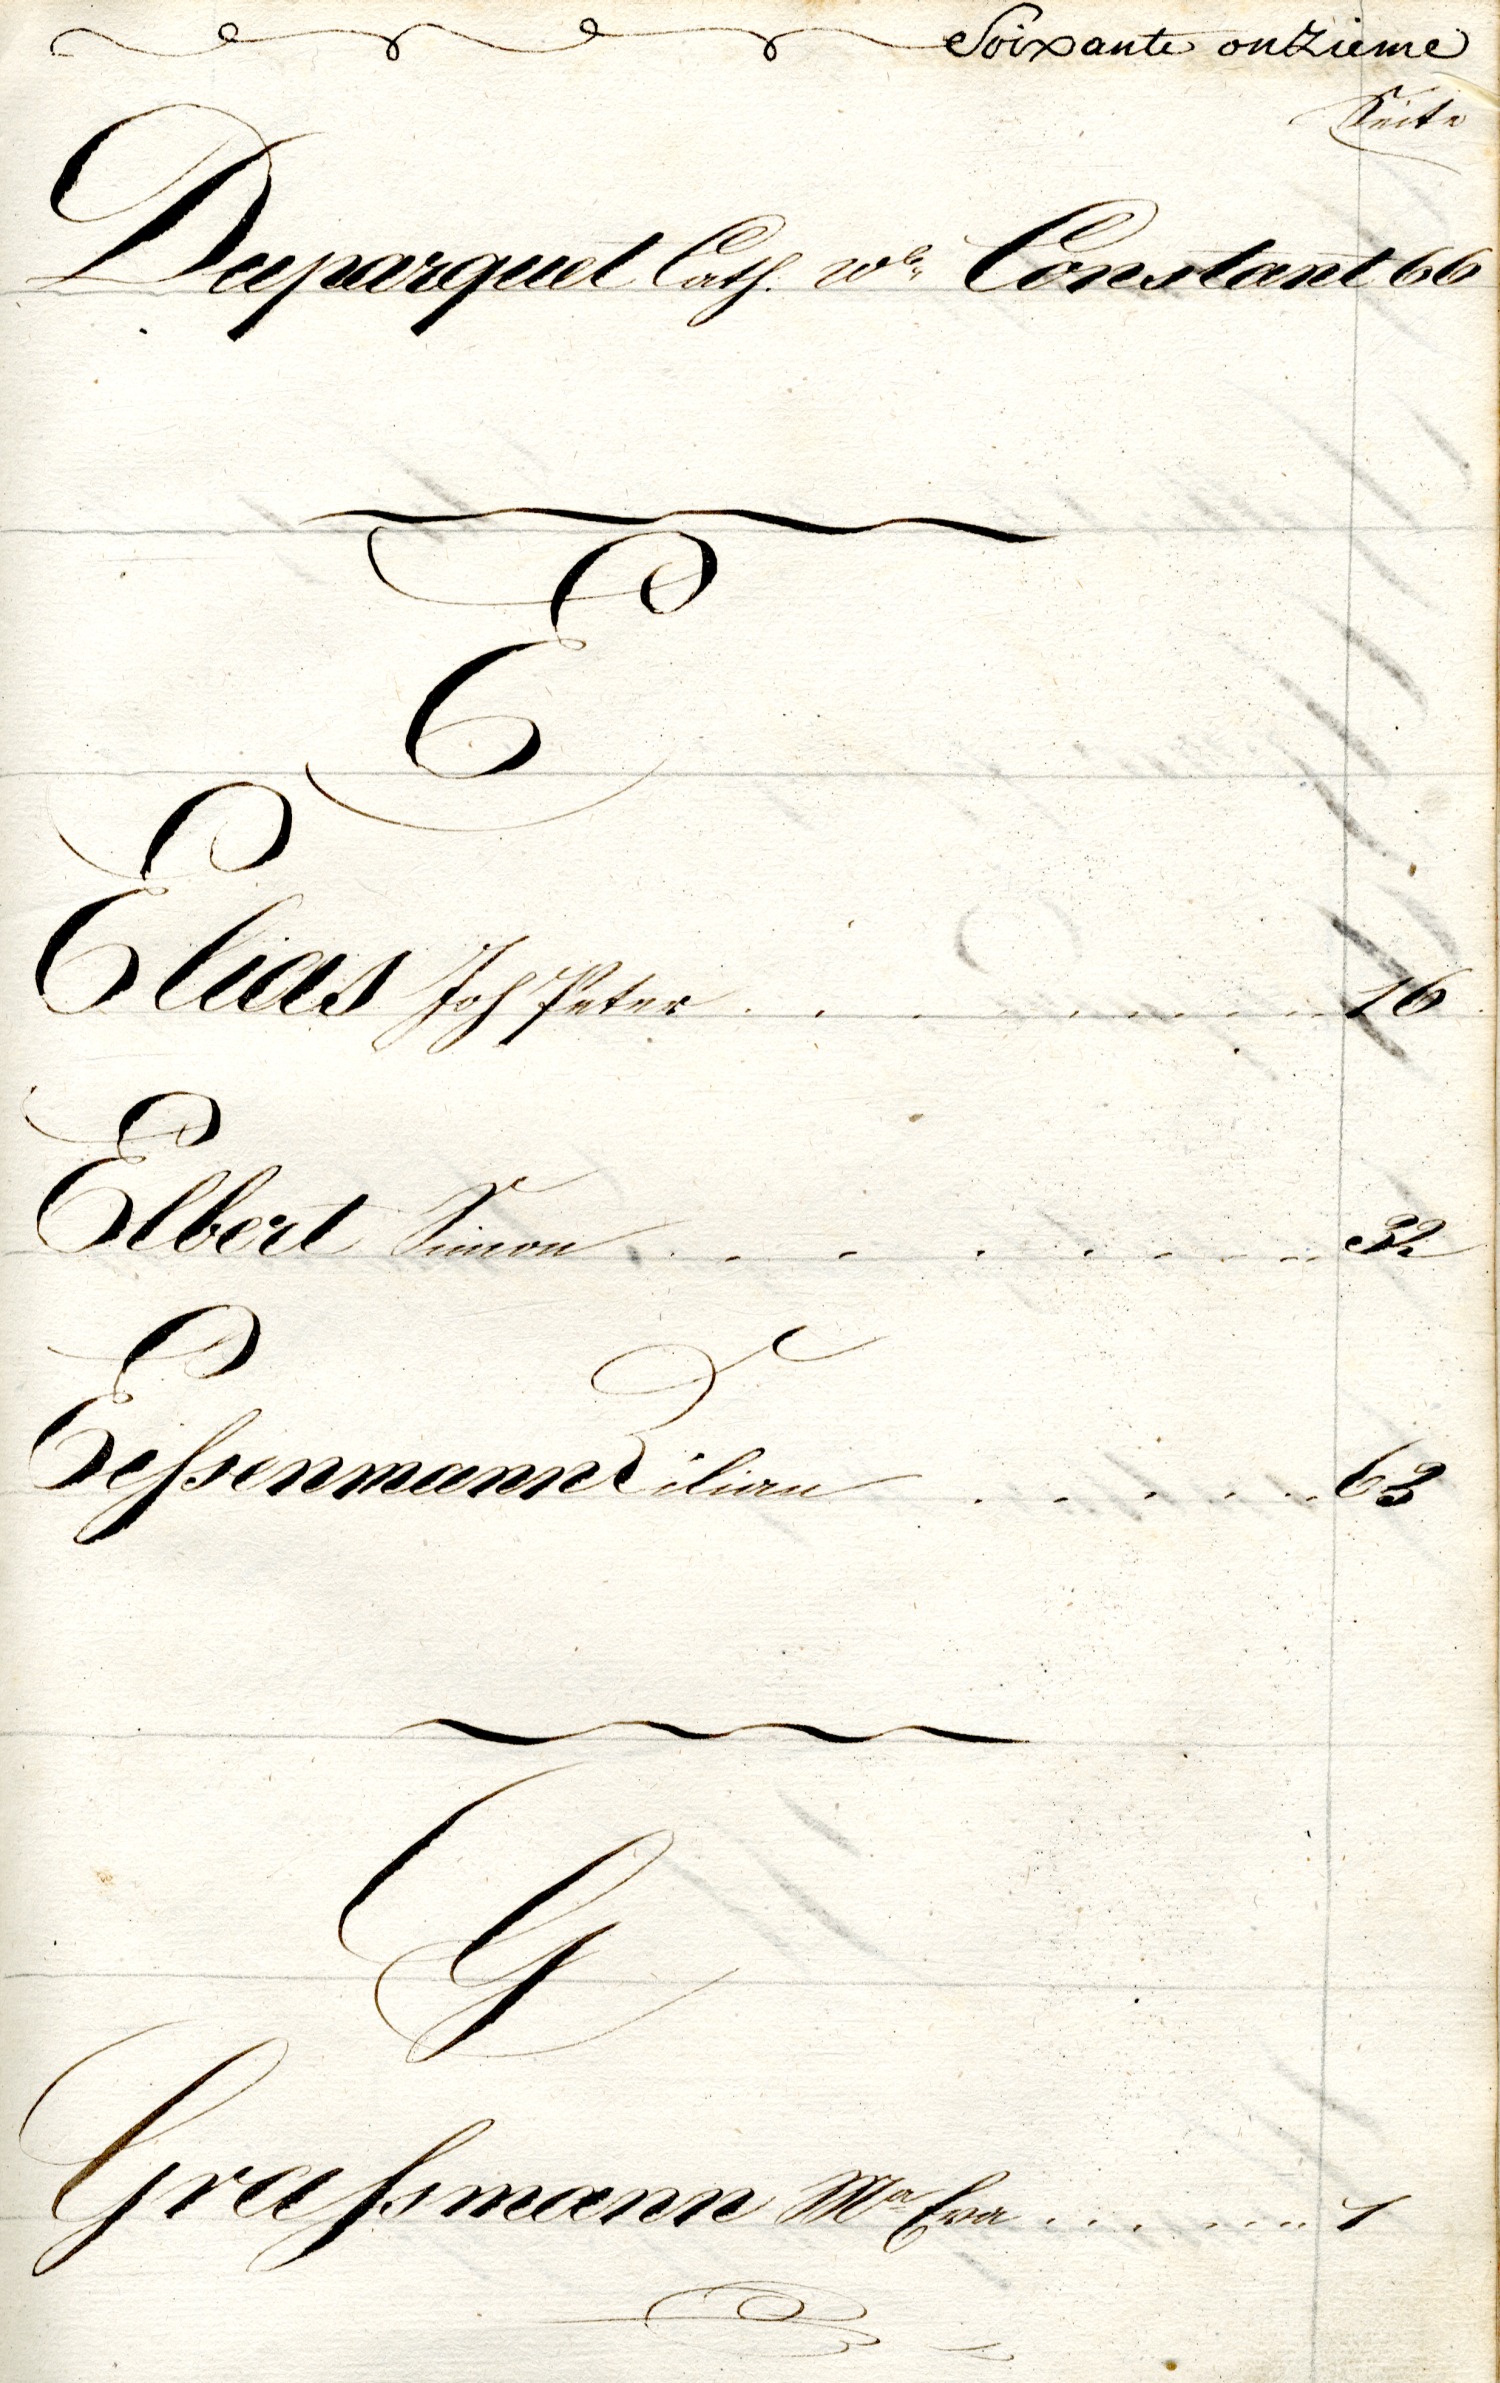 Soixante onzieme
Seite
Duparquet Cath. wb. Constant 66
E
Elias Joh Peter . . . . . . . . . . 16
Elbert Simon . . . . . . . . . 32
Eissenmann Kilian . . . . . . . 63
G
Graßmann Ma Eva . . . . . . . . 1